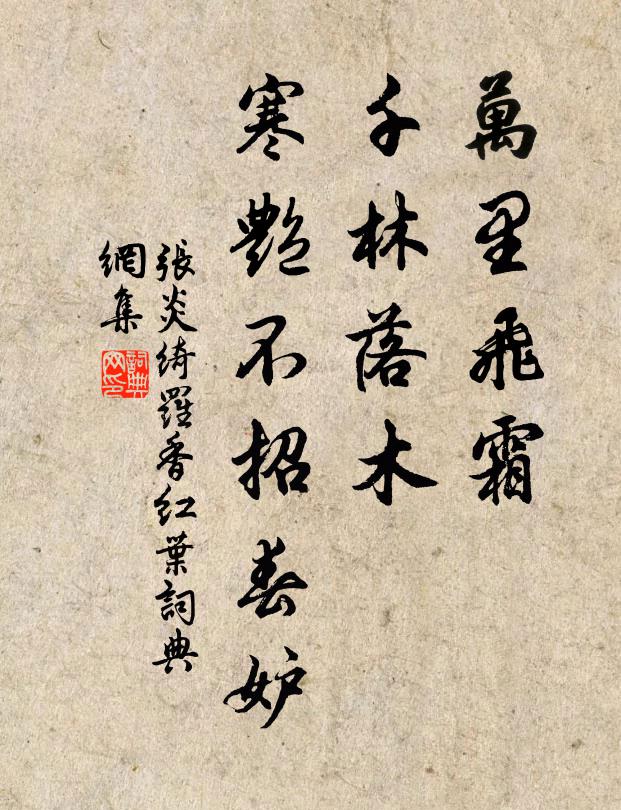 萬里飛霜
千林落木
寒艷不招春妒
張炎綺羅香紅葉詞典
網集
詞典
网印